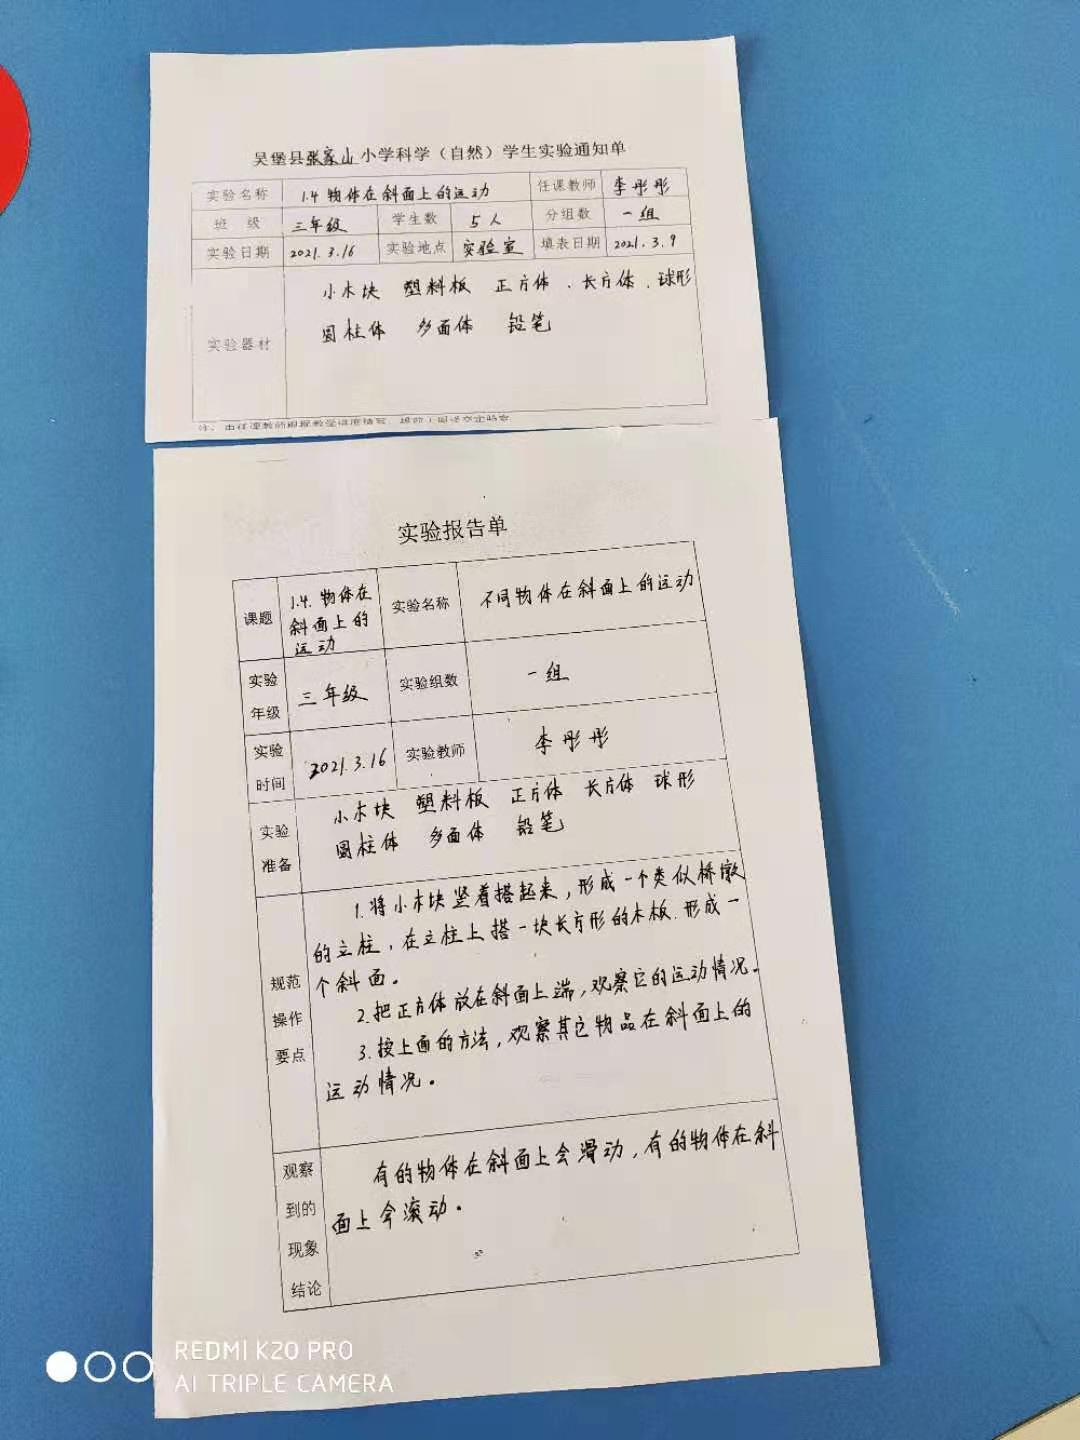 吴堡县张家山小学科学（自然）学生实验通知单
实验名称 1.4 物体在斜面上的运动 任课教师 李彤彤
班 级 三年级 学生数 5人 分组数 一组
实验日期 2021.3.16 实验地点 实验室 填表日期 2021.3.9
小木块 塑料板 正方体 、长方体 、球形
圆柱体 多面体 铅笔
实验器材
实验报告单
课题 1.4. 物体在斜面上的运动 实验名称 不同物体在斜面上的运动
实验年级 三年级 实验组数 一组
实验时间 2021.3.16 实验教师 李彤彤
实验准备
小木块 塑料板 正方体 长方体 球形
圆柱体 多面体 铅笔
规范操作要点
1.将小木块竖着搭起来，形成一个类似桥墩
的立柱，在立柱上搭一块长方形的木板.形成一
个斜面。
2.把正方体放在斜面上端，观察它的运动情况。
3.按上面的方法，观察其它物品在斜面上的
运动情况。
观察到的现象结论
有的物体在斜面上会滑动，有的物体在斜
面上会滚动。
REDMI K20 PRO
AI TRIPLE CAMERA